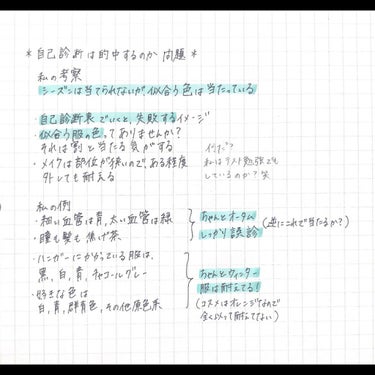 ＊自己診断は的中するのか問題＊
私の考察
シーズンは当てられないが、似合う色は当たっている
・自己診断表でいくと、失敗するイメージ
・似合う服の色ってありませんか?
それは割と当たる気がする
・メイクは部位が狭いので、ある程度
外しても耐える
何だ?
私はテスト勉強でも
しているのか?笑
私の例
・細い血管は青、太い血管は緑
・瞳も髪も焦げ茶
ちゃんとオータム
しっかり誤診
(逆にこれで当たるか?)
・ハンガーにかかっている服は、
黒、白、青、チャコールグレー
・好きな色は
白、青、群青色、その他原色系
ちゃんとウィンター
服は耐えてる!
(コスメはオレンジなので
全くもって耐えてない)